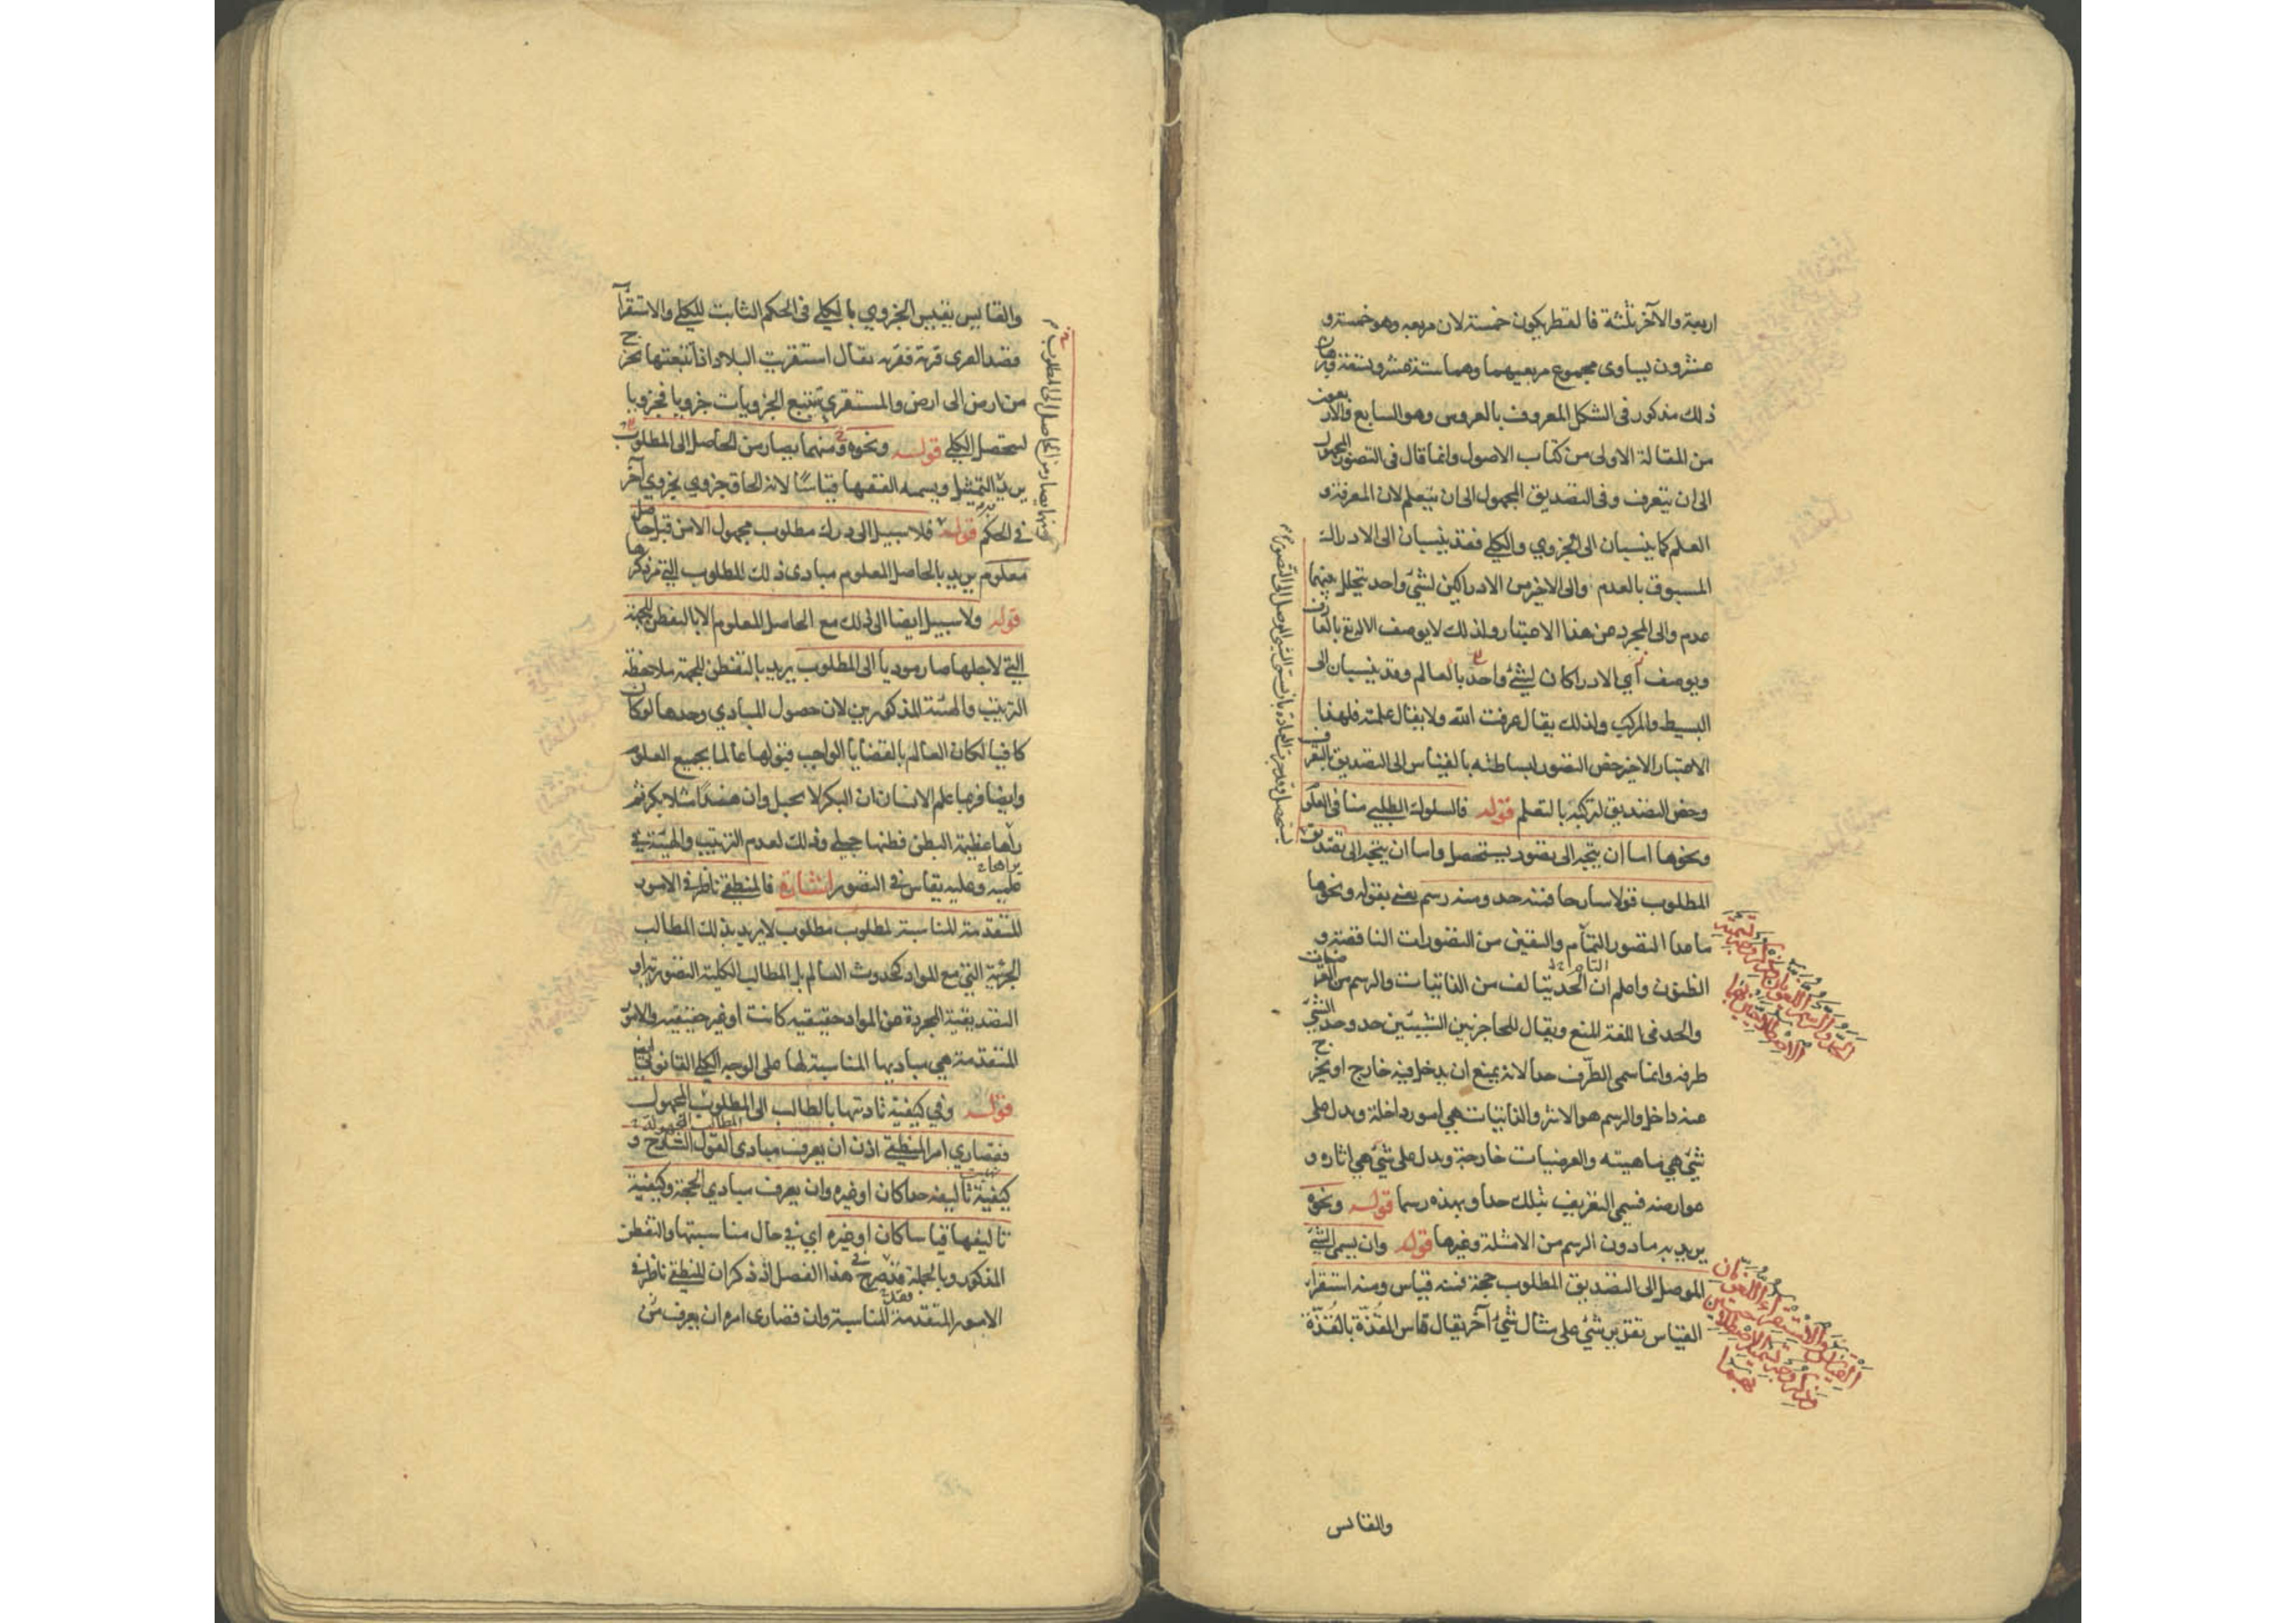 اربعة والآخر ثلثة فالقطر يكون خمسة لان مربعه وهو خمسة و
عشرون يساوى مجموع مربعيهما وهما ستة عشر وتسعة وبرهان
ذلك مذكور فى الشكل المعروف بالعروس وهو السابع والاربعون
من المقالة الاولى من كتاب الاصول وانما قال فى التصور المجهول
الى ان يتعرف وفى التصديق المجهول الى ان يتعلم لان المعرفة و
العلم كما ينسبان الى الجزوي والكلي فقد ينسبان الى الادراك
المسبوق بالعدم والى الاخير من الادراكين لشئ واحد يتخلل بينهما
عدم والى المجرد عن هذا الاعتبار ولذلك لا يوصف الاله تع بالعارف
ويوصف اي الادراكان لشئ واحد بالعالم وقد ينسبان الى
البسيط والمركب ولذلك يقال عرفت الله ولا يقال علمته فلهذا
الاعتبار الاخير خص التصور لبساطته بالقياس الى التصديق بالتعرف
وخص التصديق لتركبه بالتعلم قوله فالسلوك الطلبي منا فى العلوم
ونحوها اما ان يتجه الى تصور يستحصل واما ان يتجه الى تصديق
المطلوب قولا شارحا فمنه حد ومنه رسم يعنى بقوله ونحوها
ما عدا التصور التام واليقين من التصورات الناقصة و
الظنون واعلم ان الحد التام يتالف من الذاتيات والرسم من العرضيات
والحد فى اللغة المنع ويقال للحاجز بين الشيئين حد وحد الشئ
طرفه وانما سمى الطرف حدا لانه يمنع ان يدخل فيه خارج او يخرج
عنه داخل والرسم هو الاثر والذاتيات هي امور داخلة ويدل على
شئ هي ماهيته والعرضيات خارجة ويدل على شئ هي اثاره و
عوارضه فسمى التعريف بتلك حدا وبهذه رسما قوله ونحوه
يريد به ما دون الرسم من الامثلة وغيرها قوله وان يسمى الشئ
الموصل الى التصديق المطلوب حجة فمنه قياس ومنه استقراء
القياس تقدير شئ على مثال شئ آخر يقال قاس القذة بالقذة
والقايس
والقايس يقيس الجزوي بالكلي فى الحكم الثابت للكلي والاستقرآء
قصد القرى قرية فقرية يقال استقريت البلاد اذا تتبعتها تخرج
من ارض الى ارض والمستقري يتتبع الجزويات جزويا فجزويا
ليتحصل الكلي قوله ونحوه ومنهما يصار من الحاصل الى المطلوب
يريد التمثيل ويسميه الفقهاء قياسا لانه الحاق جزوي بجزوي آخر
في الحكم قوله فلا سبيل الى درك مطلوب مجهول الا من قبل حاصل
معلوم يريد بالحاصل المعلوم مبادى ذلك المطلوب التي مر ذكرها
قوله ولا سبيل ايضا الى ذلك مع الحاصل المعلوم الا بالتفطن للجهة
التي لاجلها صار موديا الى المطلوب يريد بالتفطن للجهة ملاحظة
الترتيب والهيئة المذكورين لان حصول المبادي وحدها لو كان
كافيا لكان العالم بالقضايا الواجب قبولها عالما بجميع العلوم
وايضا فربما علم الانسان ان البكر لا تحبل وان هندا مثلا بكر ثم
رآها عظيمة البطن فظنها حبلى وذلك لعدم الترتيب والهيئة في
علميه وعليه يقاس في التصور اشارة فالمنطقي ناظر في الامور
المتقدمة المناسبة لمطلوب مطلوب لا يريد بذلك المطالب
الجزئية التي مع المواد كحدوث العالم بل المطالب الكلية التصورية او
التصديقية المجردة عن المواد حقيقيه كانت او غير حقيقيه والامور
المتقدمة هي مباديها المناسبة لها على الوجه الكلي القانوني ايضا
قوله وفي كيفية تاديتها بالطالب الى المطلوب المجهول
فقصاري امر المنطقي اذن ان يعرف مبادى القول الشارح و
كيفية تاليفه حدا كان او غيره وان يعرف مبادي الحجة وكيفية
تاليفها قياسا كان او غيره اي في حال مناسبتها والتفطن
المذكور وبالجملة قد صرح في هذا الفصل اذ ذكر ان المنطقي ناظر في
الامور المتقدمة المناسبة وان قصارى امره ان يعرف